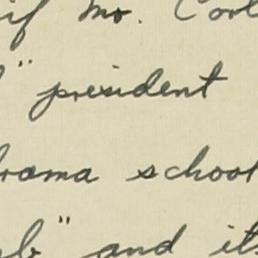 if Mr.
" president
drama school
" and its